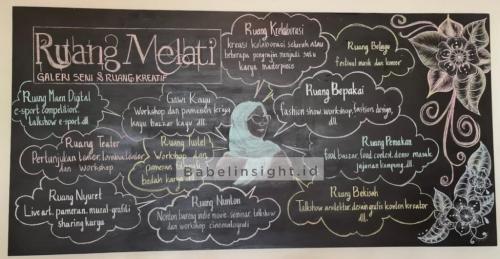 Ruang Melati
GALERI SENI & RUANG KREATIF
Ruang Kreaborasi
kreasi kolaborasi seluruh atau
beberapa pengrajin menjadi satu
karya masterpiece
Ruang Belagu
festival musik dan konser
Ruang Maen Digital
e-sport competition,
talkshow e-sport, dll
Gawi Kayu
Workshop dan pameran kriya
kayu bazar kayu dll.
Ruang Bepakai
fashion show, workshop, fashion design,
dll.
Ruang Teater
Pertunjukan teater, lomba teater
dan Workshop
Ruang Tulel
Workshop dan
pameran
bedah karya
Ruang Pemakan
food bazaar, food contest, demo masak
jajanan kampung, dll.
Ruang Nyuret
Live art, pameran, mural-grafiti
sharing karya
Ruang Nunton
Nonton bareng indie movie seminar, talkshow
dan workshop cinematografi
Ruang Bekisah
Talkshow arsitektur, desain grafis konten kreator
dll.
Babelinsight.id